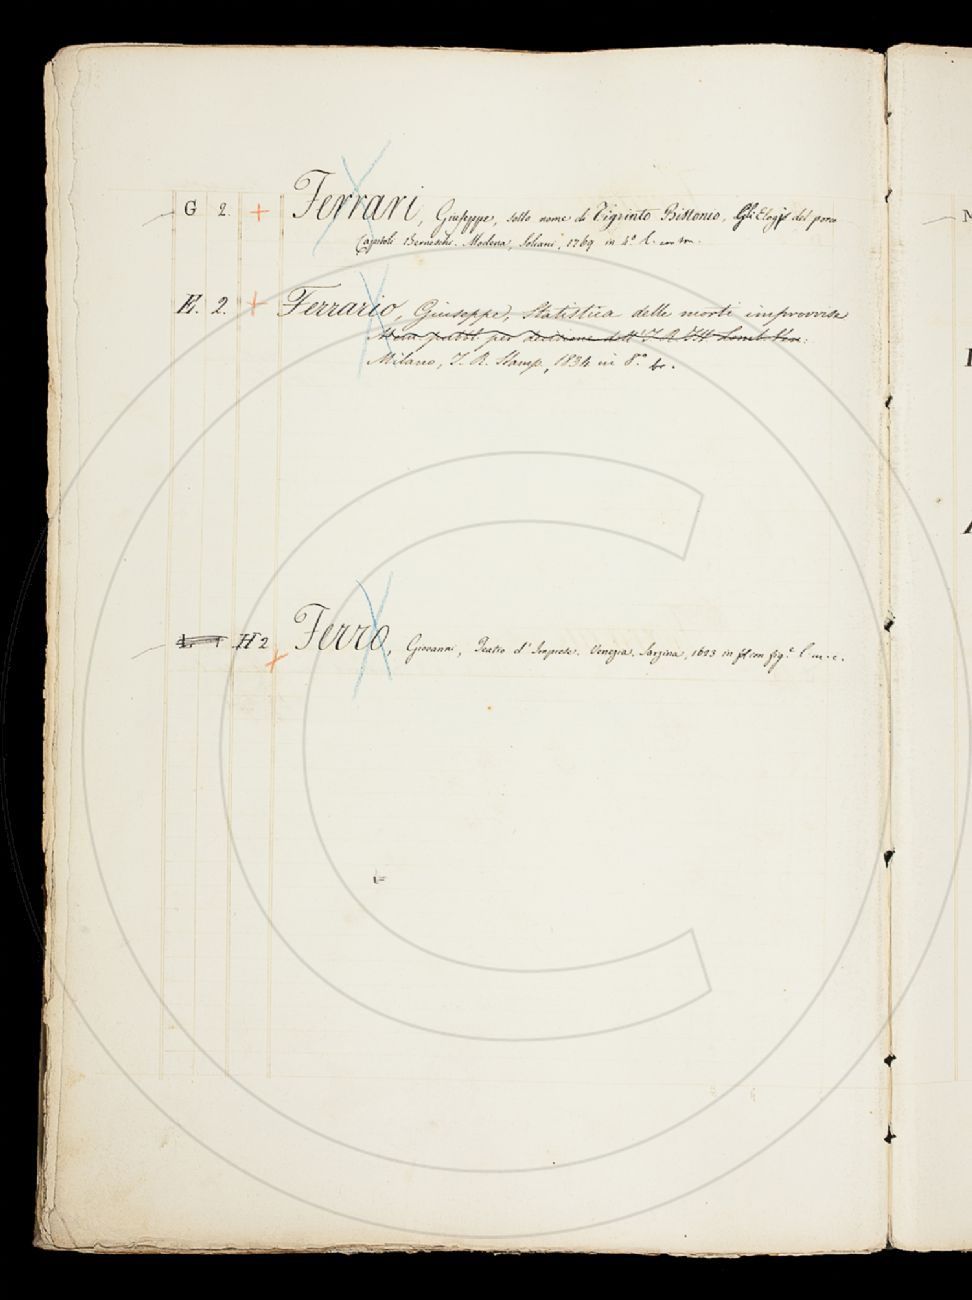 G 2. + Ferrari, Giuseppe, sotto nome di Tigrinto Bistonio, Gli Elogj del porco
Capitoli Berneschi. Modena, Soliani, 1769 in 4.º l.
E. 2. + Ferrario, Giuseppe, Statistica delle morti improvvise
Milano, I. R. Stamp. 1834 in 8.º br.
H 2 + Ferro, Giovanni, Teatro d'Imprese. Venezia, Sarzina, 1623 in fol con fig.e l. m. c.